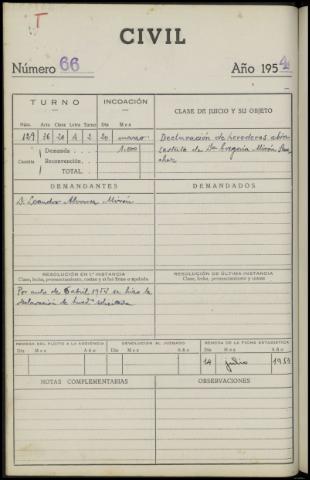 T
CIVIL
Número 66 Año 1954
TURNO INCOACIÓN CLASE DE JUICIO Y SU OBJETO
Núm. Arts. Clase Letra Turno Día Mes
129 36 20 A 2 20 marzo
Declaración de herederos abin
Cuantía Demanda 1.000
testato de Dña Gregoria Mirón
Reconvención
TOTAL
DEMANDANTES DEMANDADOS
D. Leandro Alvarez Mirón
RESOLUCIÓN EN 1.ª INSTANCIA RESOLUCIÓN DE ÚLTIMA INSTANCIA
Clase, fecha, pronunciamiento, costas y si fué firme o apelada Clase, fecha, pronunciamiento, costas
Por auto de 6 abril 1954 se hizo la
declaración de hered.os solicitada
REMESA DEL PLEITO A LA AUDIENCIA DEVOLUCIÓN AL JUZGADO REMESA DE LA FICHA ESTADÍSTICA
Día Mes Año Día Mes Año Día Mes Año
14 julio 1954
NOTAS COMPLEMENTARIAS OBSERVACIONES